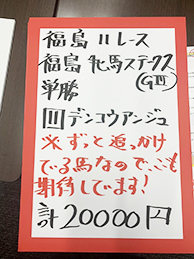 福島11レース
福島牝馬ステークス
(GⅢ)
単勝
⑪デンコウアンジュ
※ずっと追っかけ
てる馬なので、ここも
期待しています!
計20000円